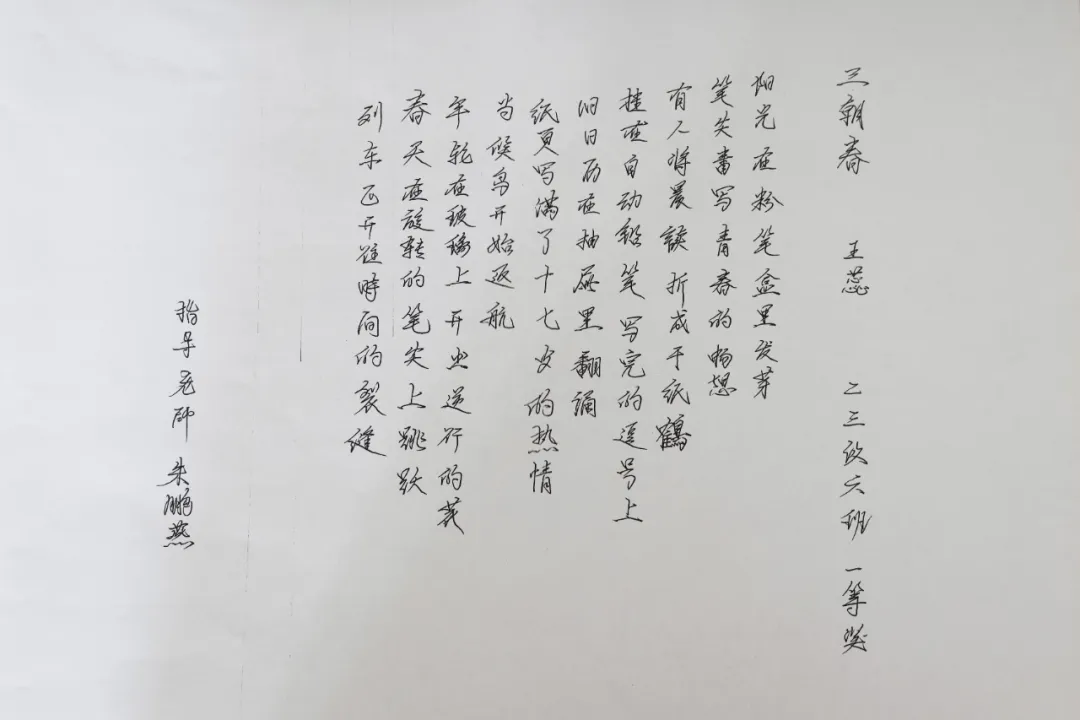 三朝春 王蕊 二三级六班 一等奖
阳光在粉笔盒里发芽
笔尖书写青春的畅想
有人将晨读折成千纸鹤
挂在自动铅笔写完的逗号上
旧日历在抽屉里翻涌
纸页写满了十七岁的热情
当候鸟开始返航
年轮在玻璃上开出逆行的花
春天在旋转的笔尖上跳跃
列车正开往时间的裂缝
指导老师 朱鹏燕